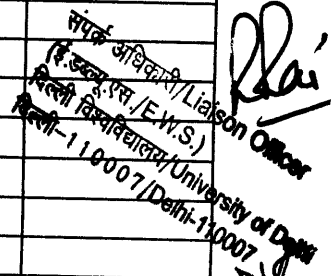 संपर्क अधिकारी/Liaison Officer
(ई.डब्ल्यू.एस./E.W.S.)
दिल्ली विश्वविद्यालय/University of Delhi
दिल्ली-110007/Delhi-110007